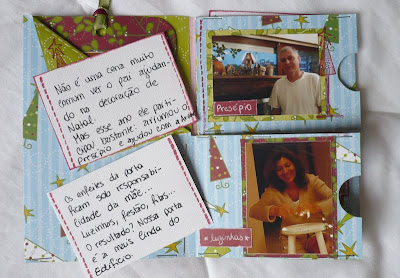 Não é uma cena muito
comum ver o pai ajudan-
do na decoração de
Natal.
Mas esse ano ele parti-
cipou bastante: arrumou o
Presépio e ajudou com a
Presépio
Os enfeites da porta
ficam sob responsabi-
lidade da mãe...
Luzinhas, festão, fitas...
O resultado? Nossa porta
é a mais linda do
Edifício.
luzinhas